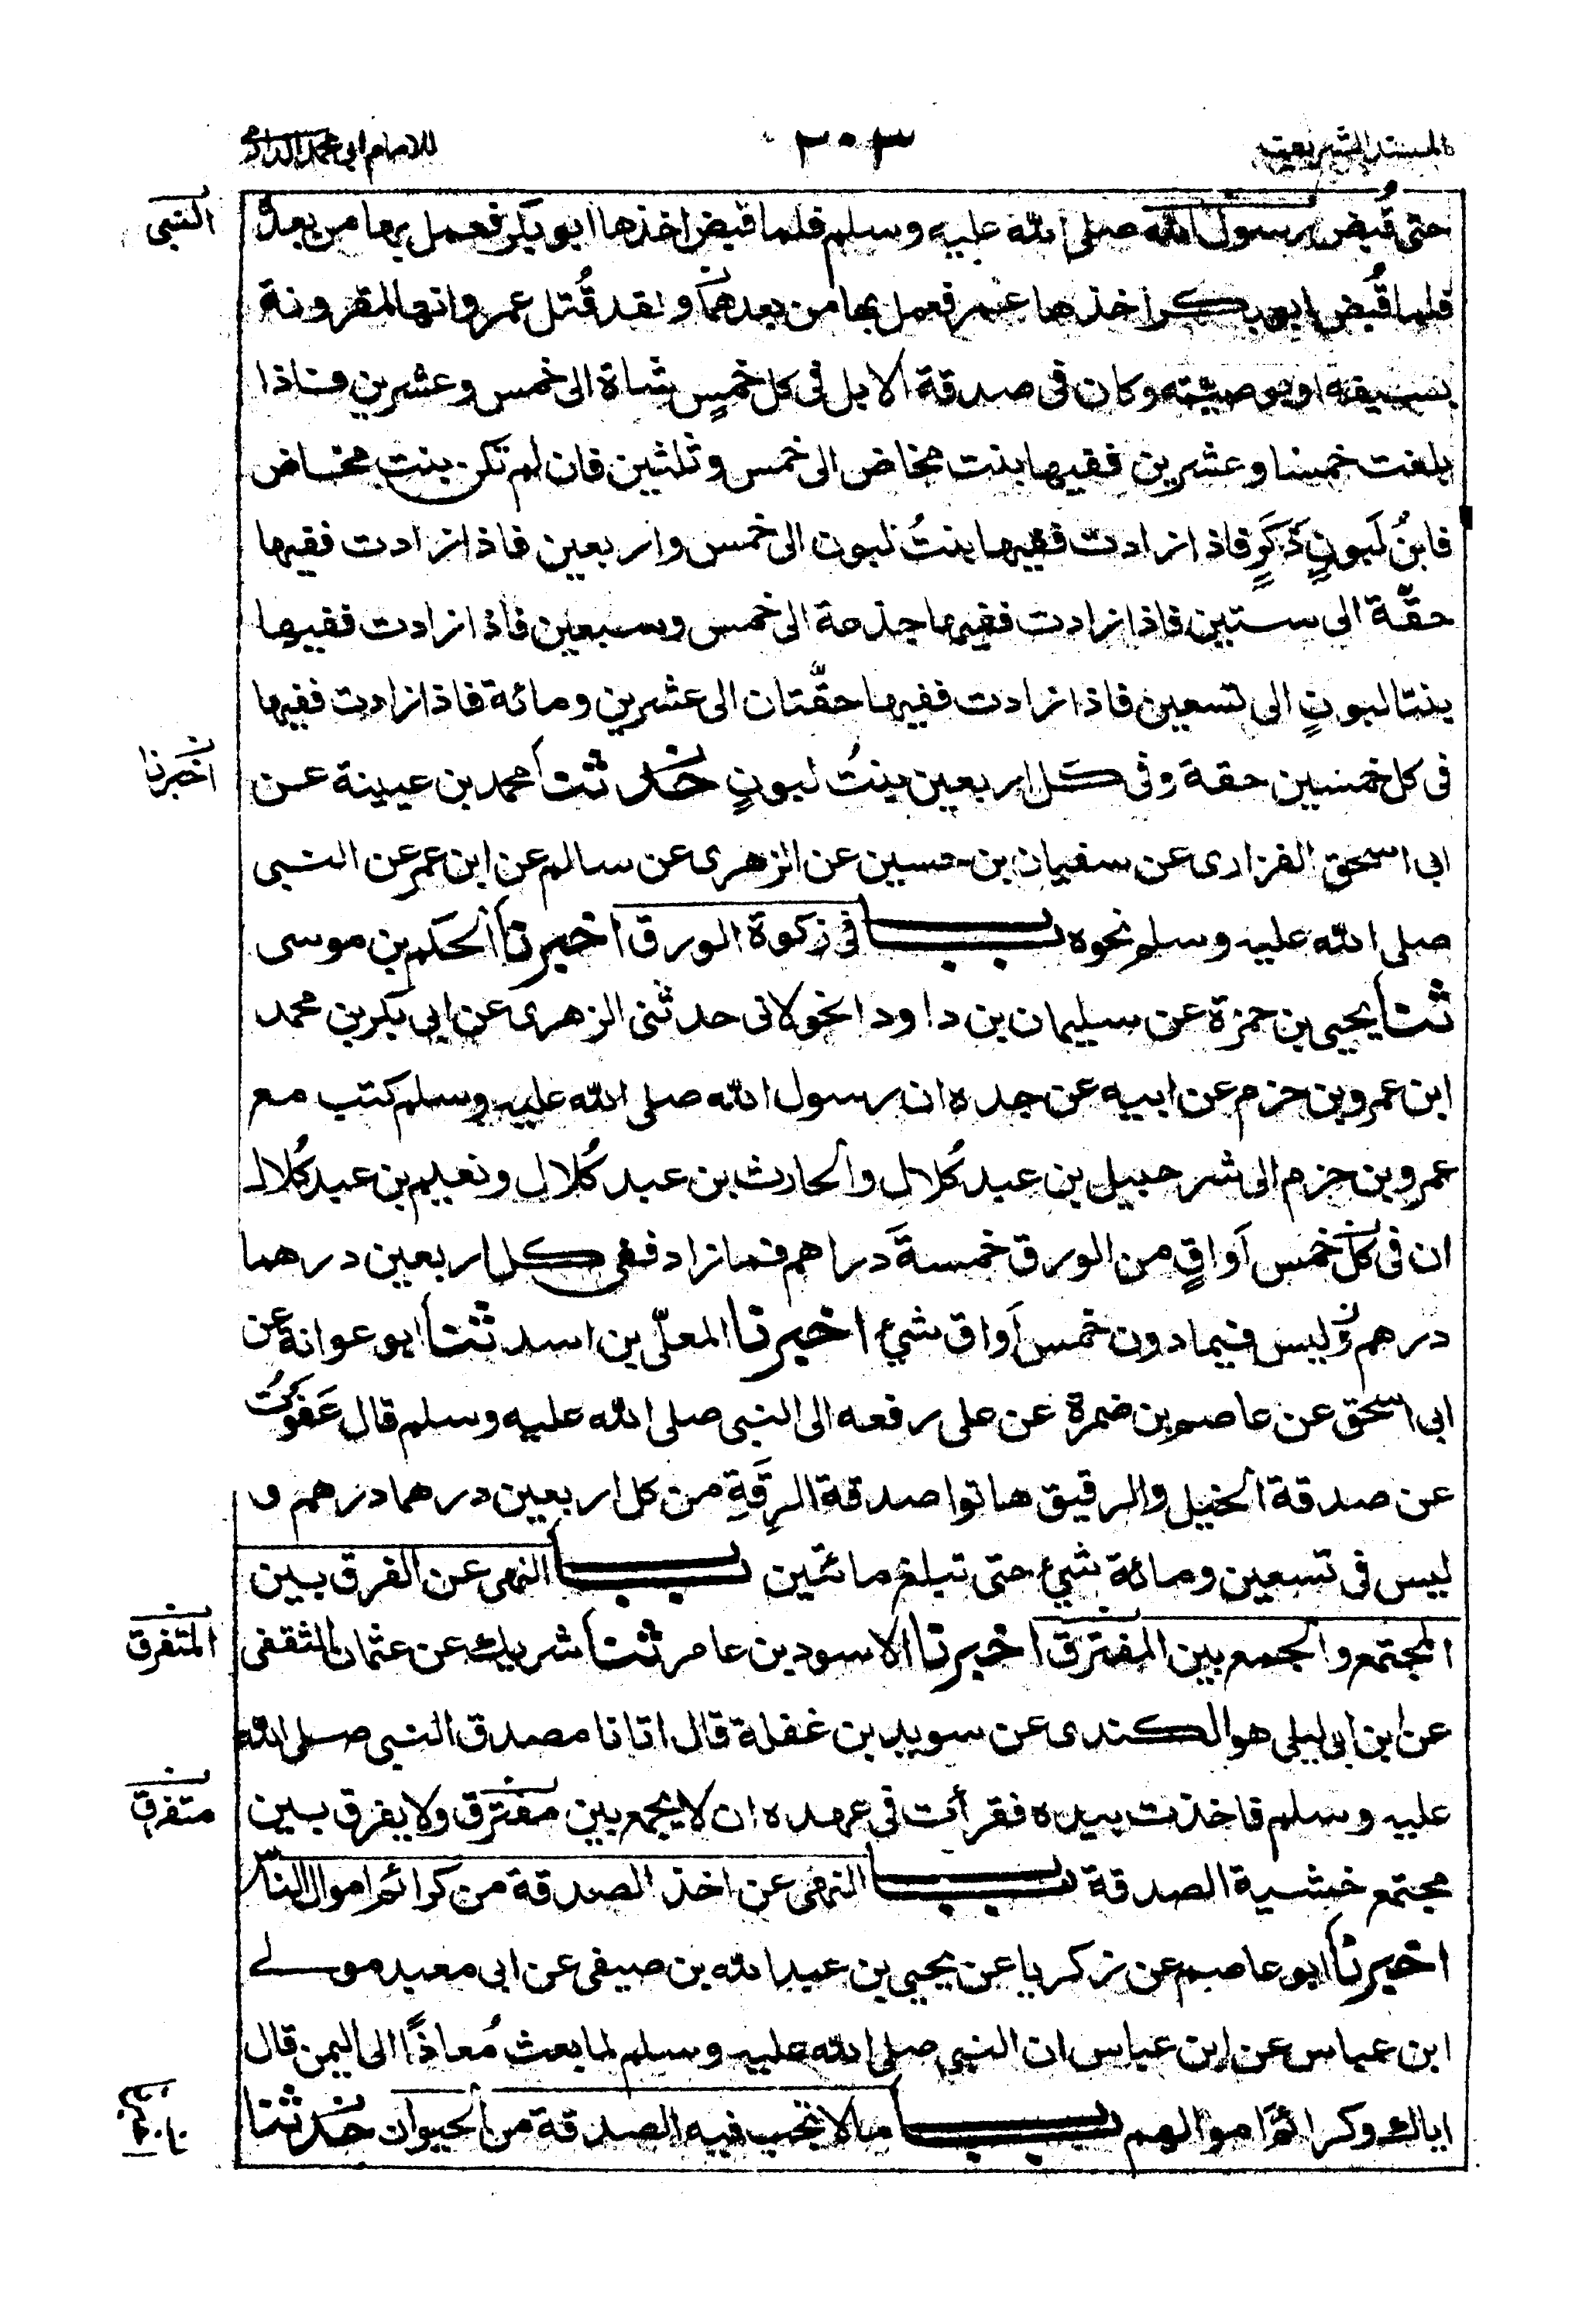 المسند الشريف
٢٠٣
للامام ابی محمد الدارمی
حتى قُبض رسول الله صلى الله عليه وسلم فلما قبض اخذها ابو بكر فعمل بها من بعدهٗ
النبی
فلما قُبض ابو بكر اخذها عمر فعمل بها من بعدهما ولقد قُتل عمر وانها لمقرونة
بسيفه او بوصيته وكان فى صدقة الابل فى كل خمسٍ شاة الى خمس وعشرين فاذا
بلغت خمسا وعشرين ففيها بنت مخاض الى خمس وثلثين فان لم تكن بنت مخاض
فابنُ لَبونٍ ذَكَرٍ فاذا زادت ففيها بنتُ لبون الى خمس واربعين فاذا زادت ففيها
حقّة الى ستين فاذا زادت ففيها جذعة الى خمس وسبعين فاذا زادت ففيها
بنتا لبونٍ الى تسعين فاذا زادت ففيها حقّتان الى عشرين ومائة فاذا زادت ففيها
فى كل خمسين حقة وفى كل اربعين بنتُ لبونٍ حدثنا محمد بن عيينة عن
اخبرنا
ابى اسحق الفزارى عن سفيان بن حسين عن الزهرى عن سالم عن ابن عمر عن النبى
صلى الله عليه وسلم نحوه باب فى زكوة الورق اخبرنا الحكم بن موسى
ثنا يحيى بن حمزة عن سليمان بن داود الخولانى حدثنى الزهرى عن ابى بكر بن محمد
ابن عمرو بن حزم عن ابيه عن جده ان رسول الله صلى الله عليه وسلم كتب مع
عمرو بن حزم الى شرحبيل بن عبد كلال والحارث بن عبد كُلال ونعيم بن عبد كُلال
ان فى كل خمس اَواقٍ من الورق خمسةَ دراهم فما زاد ففى كل اربعين درهما
درهم وليس فيما دون خمس اَواق شيء اخبرنا المعلّى بن اسد ثنا ابو عوانة عن
ابى اسحق عن عاصم بن ضمرة عن على رفعه الى النبى صلى الله عليه وسلم قال عَفَوتُ
عن صدقة الخيل والرقيق هاتوا صدقة الرِقَةِ من كل اربعين درهما درهم و
ليس فى تسعين ومائة شيء حتى تبلغ مائتين باب النهى عن الفرق بين
المجتمع والجمع بين المفترق اخبرنا الاسود بن عامر ثنا شريك عن عثمان الثقفى
المتفرق
عن ابن ابى ليلى هو الكندى عن سويد بن غفلة قال اتانا مصدق النبى صلى الله
عليه وسلم فاخذت بيده فقرأت فى عهده ان لا يجمع بين مفترق ولا يفرق بين
متفرق
مجتمع خشية الصدقة باب النهى عن اخذ الصدقة من كرائم اموال الناس
اخبرنا ابو عاصم عن زكريا عن يحيى بن عبد الله بن صيفى عن ابى معبد مولے
ابن عباس عن ابن عباس ان النبى صلى الله عليه وسلم لما بعث مُعاذًا الى اليمن قال
اياك وكرائمَ اموالهم باب مالا تجب فيه الصدقة من الحيوان حدثنا